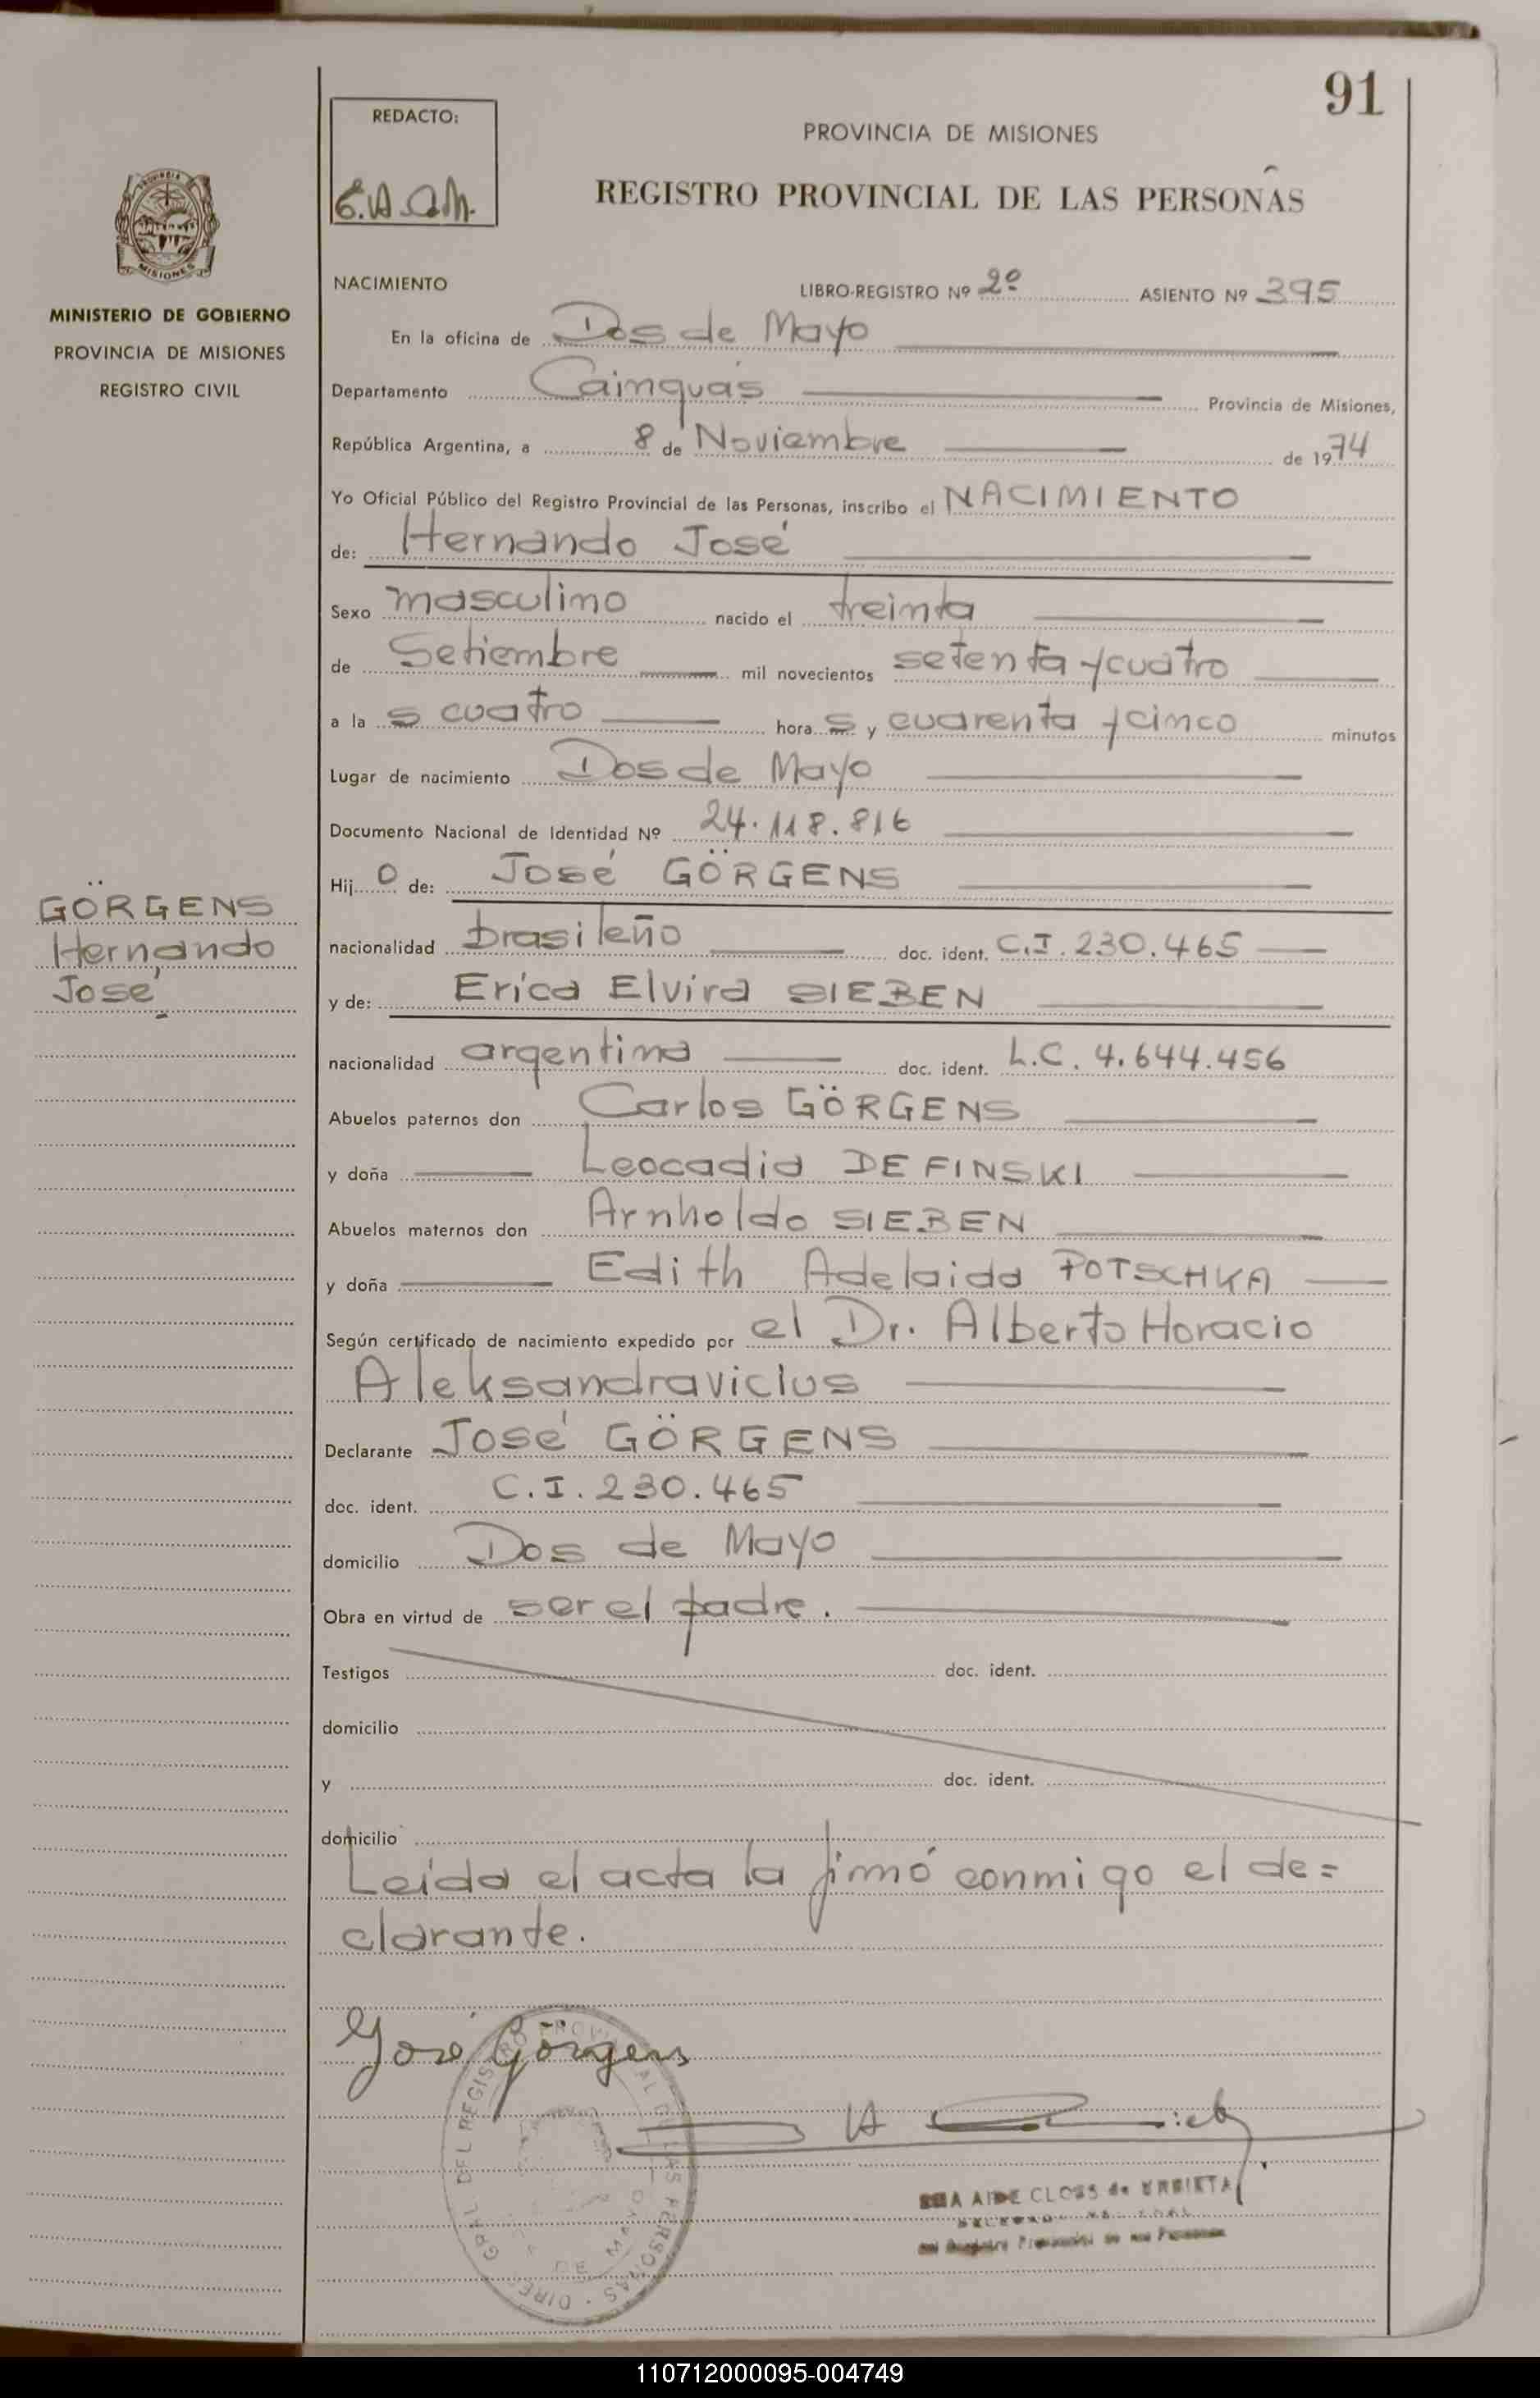 91
REDACTO:
E.A.
PROVINCIA DE MISIONES
REGISTRO PROVINCIAL DE LAS PERSONAS
PROVINCIA DE
MISIONES
MINISTERIO DE GOBIERNO
PROVINCIA DE MISIONES
REGISTRO CIVIL
NACIMIENTO LIBRO-REGISTRO Nº 2º ASIENTO Nº 395
En la oficina de Dos de Mayo
Departamento Cainguás Provincia de Misiones,
República Argentina, a 8 de Noviembre de 1974
Yo Oficial Público del Registro Provincial de las Personas, inscribo el NACIMIENTO
de: Hernando José
Sexo masculino nacido el treinta
de Setiembre mil novecientos setenta y cuatro
a la s cuatro hora s y cuarenta y cinco minutos
Lugar de nacimiento Dos de Mayo
Documento Nacional de Identidad Nº 24.118.816
Hij o de: José GÖRGENS
GÖRGENS
Hernando
José
nacionalidad brasileño doc. ident. C.I. 230.465
y de: Erica Elvira SIEBEN
nacionalidad argentina doc. ident. L.C. 4.644.456
Abuelos paternos don Carlos GÖRGENS
y doña Leocadia DEFINSKI
Abuelos maternos don Arnholdo SIEBEN
y doña Edith Adelaida POTSCHKA
Según certificado de nacimiento expedido por el Dr. Alberto Horacio
Aleksandravicius
Declarante José GÖRGENS
doc. ident. C.I. 230.465
domicilio Dos de Mayo
Obra en virtud de ser el padre.
Testigos doc. ident.
domicilio
y doc. ident.
domicilio
Leída el acta la firmó conmigo el de=
clarante.
José Görgens
DIREC GRAL DEL REGISTRO PROVINCIAL DE LAS PERSONAS
DE MAYO
AIDE CLOSS de URRIETA
110712000095-004749